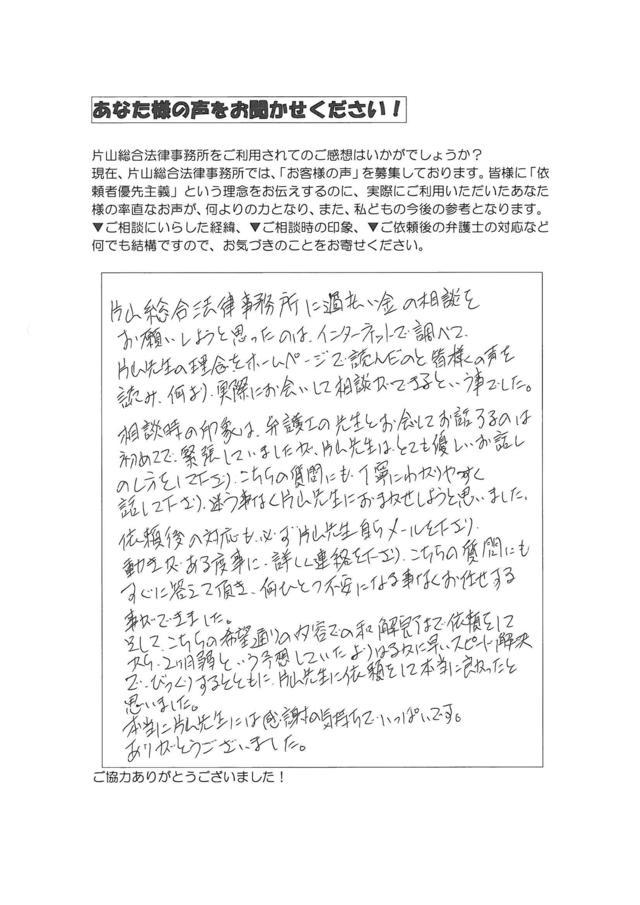 あなた様の声をお聞かせください！
片山総合法律事務所をご利用されてのご感想はいかがでしょうか？
現在、片山総合法律事務所では、「お客様の声」を募集しております。皆様に「依
頼者優先主義」という理念をお伝えするのに、実際にご利用いただいたあなた
様の率直なお声が、何よりの力となり、また、私どもの今後の参考となります。
▼ご相談にいらした経緯、▼ご相談時の印象、▼ご依頼後の弁護士の対応など
何でも結構ですので、お気づきのことをお寄せください。
片山総合法律事務所に過払い金の相談を
お願いしようと思ったのは、インターネットで調べて、
片山先生の理念をホームページで読んだのと皆様の声を
読み、何より、実際にお会いして相談ができるという事でした。
相談時の印象は、弁護士の先生とお会してお話するのは
初めてで、緊張していましたが、片山先生は、とても優しいお話し
のし方をして下さり、こちらの質問にも、丁寧にわかりやすく
話して下さり、迷う事なく片山先生におまかせしようと思いました。
依頼後の対応も必ず片山先生自らメールを下さり、
動きがある度事に、詳しく連絡を下さり、こちらの質問にも
すぐに答えて頂き、何ひとつ不安になる事なくお任せする
事ができました。
そして、こちらの希望通りの内容での和解完了まで依頼をして
から、2ヶ月弱という予想していたよりはるかに早いスピード解決
で、びっくりするとともに、片山先生に依頼をして本当に良かったと
思いました。
本当に片山先生には感謝の気持ちでいっぱいです。
ありがとうございました。
ご協力ありがとうございました！